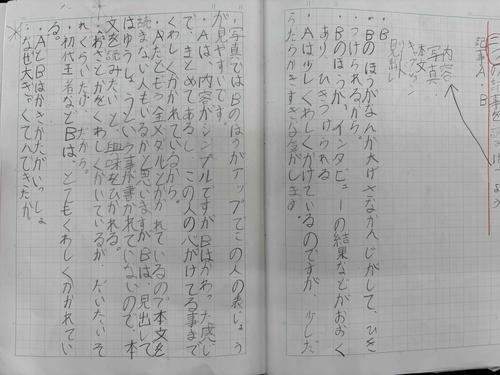 記事A・B
内容
写真
本文
見出し
・B
・Bのほうがなんか大げさなかんじがして、ひき
つけられるから。
・Bのほうが、インタビューの結果などがおおく
あり、ひきつけられる
・Aは少しくわしくかけているのですが、少しだ
らだらかきすぎな気がします。
・写真ではBのほうがアップでこの人の表じょう
が見やすいです。
・Aは、内容がシンプルですがBはかわった感じ
で、まとめてあるし、この人の心がけてる事まで
くわしくかかれているから。
・Aだともう金メダルとかかれているので本文を
読まない人もいるかと思いますがBは、見出しで
はゆうしょうという事が書かれていないので、本
文を読みたいと、興味をひかれる。
くわしくかいているが、だいたいそ
れくらいだから。
・初代王者などBは、とてもくわしくかかれてい
る。
・AとBはかきかたがいっしょ
なぜ大きゃくてんできたか。